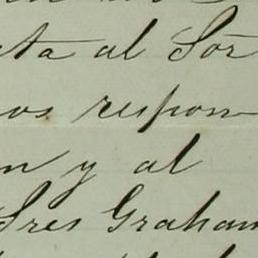 ta al Sor
os respon
n y al
Sres Graham